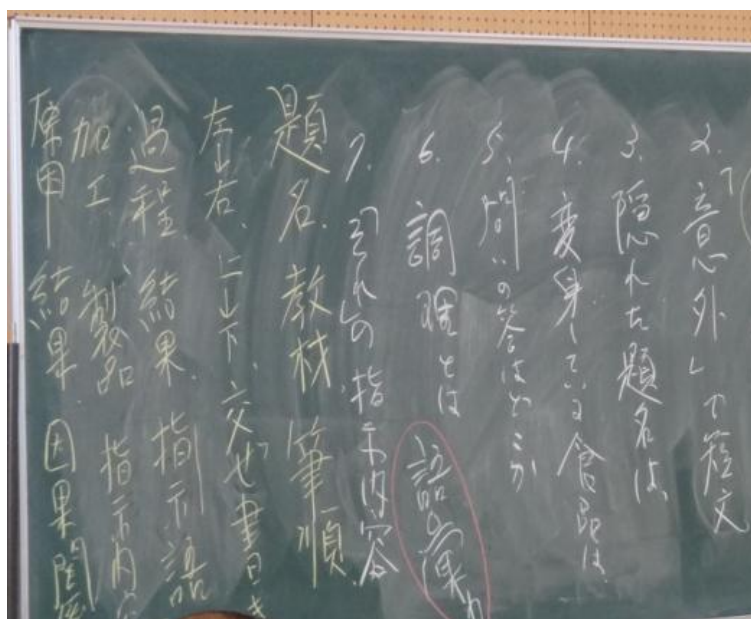 2.「意外」で短文
3. 隠れた題名は、
4. 変身している食品は
5. 問いの答はどこか
6. 調理とは 語彙力
7. 「それ」の指示内容
題名 教材 筆順
左→右、上→下、交ぜ書き
過程、結果、指示語
加工、製品 指示内
結果 因果関